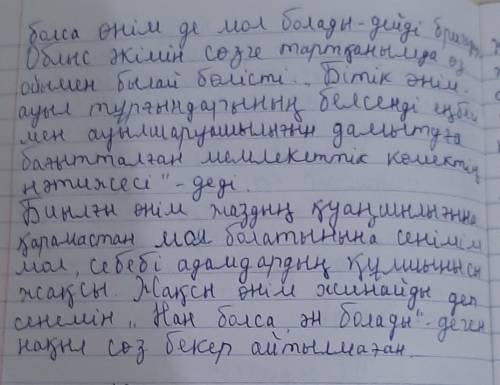 болса өнім де мол болады-дейді
Облыс әкімін сөзге тартқанымда өз
ойымен былай бөлісті. „Бітік өнім
ауыл тұрғындарының белсенді еңбегі
мен ауылшаруашылығын дамытуға
бағытталған мемлекеттік көмектің
нәтижесі"-деді.
Биылғы өнім жаздың қуаңшылығына
қарамастан мол болатынына сенімім
мол, себебі адамдардың құлшынысы
жақсы. Жақсы өнім жинайды деп
сенемін „Нан болса, ән болады"-деген
нақыл сөз бекер айтылмаған.